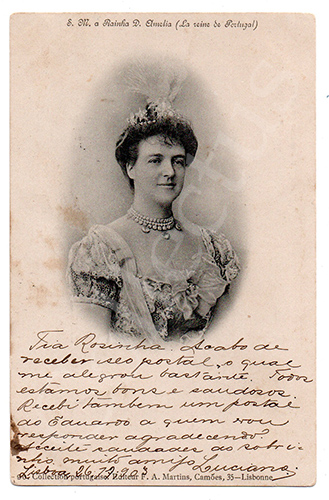 S. M. a Rainha D. Amelia (La reine de Portugal)
Tia Rosinha Acabo de
receber seo postal, o qual
me alegrou bastante. Todos
estamos bons e saudosos.
Recebi tambem um postal
do Eduardo a quem vou
responder agradecendo.
Aceite saudades do sobri-
nho muito amigo Luciano.
Lisboa 26,12,903
Collection portugaise. Editeur F. A. Martins, Camões, 35—Lisbonne.